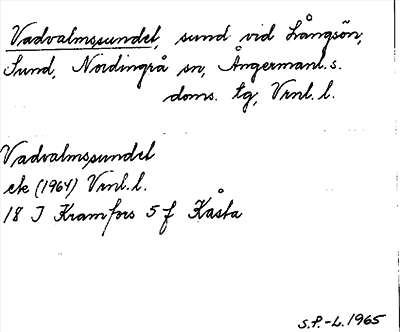 Vadvalmssundet, sund vid Långsön,
Sund, Nordingrå sn, Ångermanl. s.
doms. tg, Vrnl. l.
Vadvalmssundet
ek (1964) Vrnl. l.
18 I Kramfors 5 f Kåsta
S.P.-L. 1965